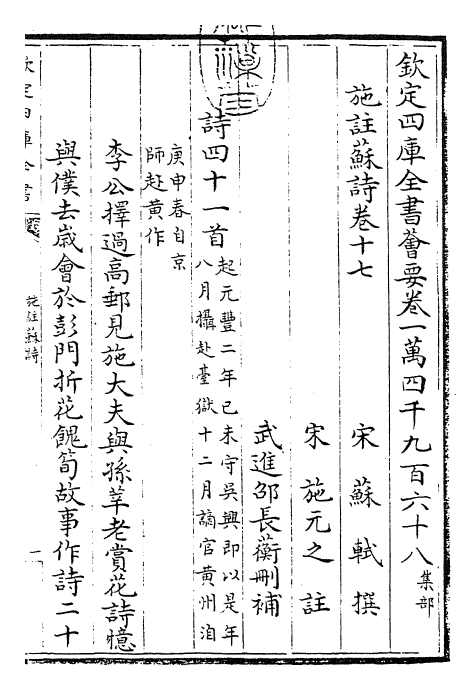 欽定四庫全書薈要卷一萬四千九百六十八集部
施註蘇詩卷十七
宋蘇軾撰
宋施元之註
武進邵長蘅刪補
詩四十一首起元豐二年己未守吳興即以是年
八月攝赴臺獄十二月謫官黃州洎
庚申春自京
師赴黃作
李公擇過高郵見施大夫與孫莘老賞花詩憶
與僕去歲會於彭門折花餽筍故事作詩二十
欽定四庫全書
施註蘇詩
一